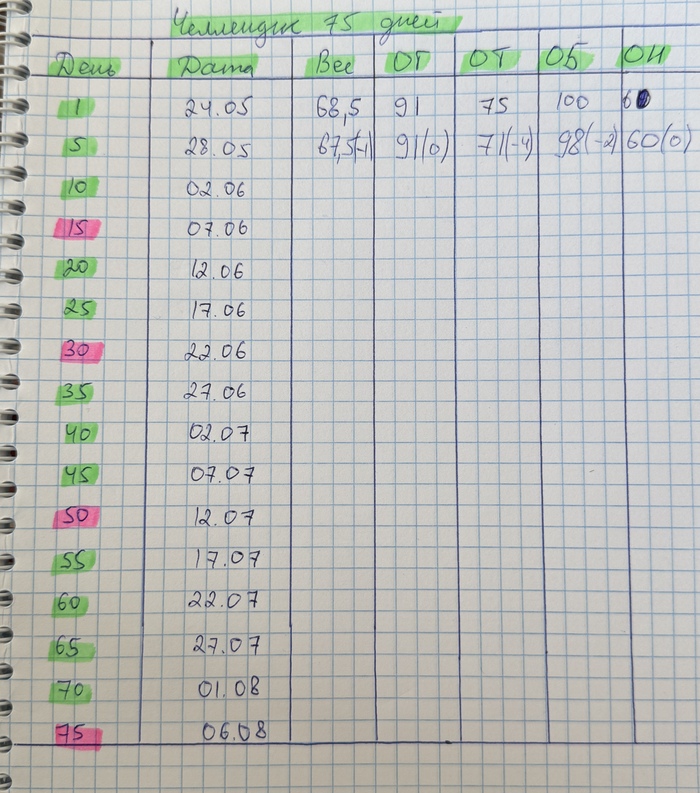 Челлендж 75 дней
День Дата Вес ОГ ОТ ОБ ОН
1 24.05 68,5 91 75 100 60
5 28.05 67,5(-1) 91(0) 71(-4) 98(-2) 60(0)
10 02.06
15 07.06
20 12.06
25 17.06
30 22.06
35 27.06
40 02.07
45 07.07
50 12.07
55 17.07
60 22.07
65 27.07
70 01.08
75 06.08